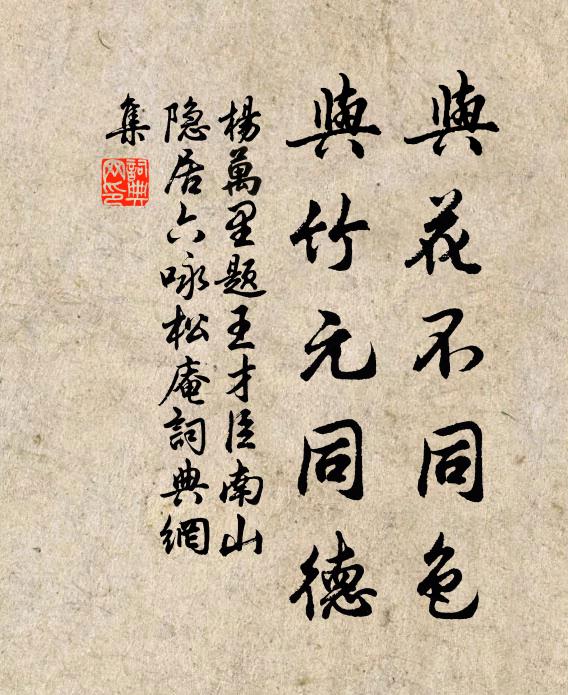 與花不同色
與竹元同德
楊萬里題王才臣南山
隐居六咏松庵詞典網
集
詞典
网印